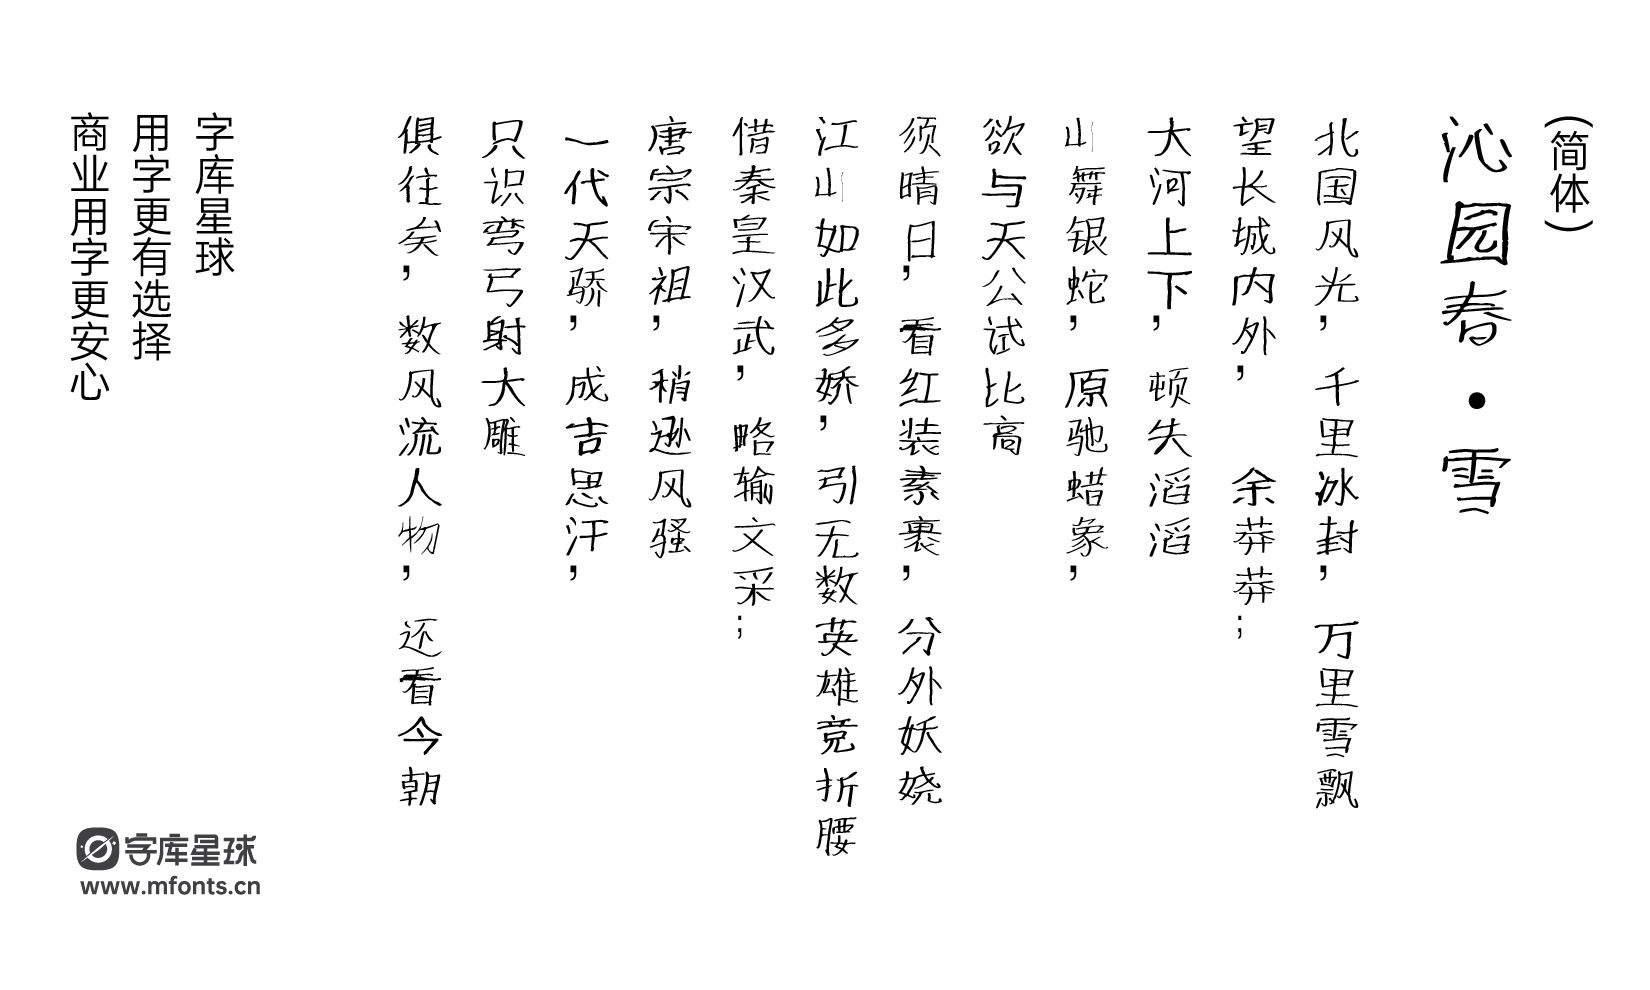 (简体)
沁园春·雪
北国风光,千里冰封,万里雪飘
望长城内外, 余莽莽;
大河上下,顿失滔滔
山舞银蛇,原驰蜡象,
欲与天公试比高
须晴日,看红装素裹,分外妖娆
江山如此多娇,引无数英雄竞折腰
惜秦皇汉武,略输文采;
唐宗宋祖,稍逊风骚
一代天骄,成吉思汗,
只识弯弓射大雕
俱往矣,数风流人物,还看今朝
字库星球
用字更有选择
商业用字更安心
字库星球
www.mfonts.cn